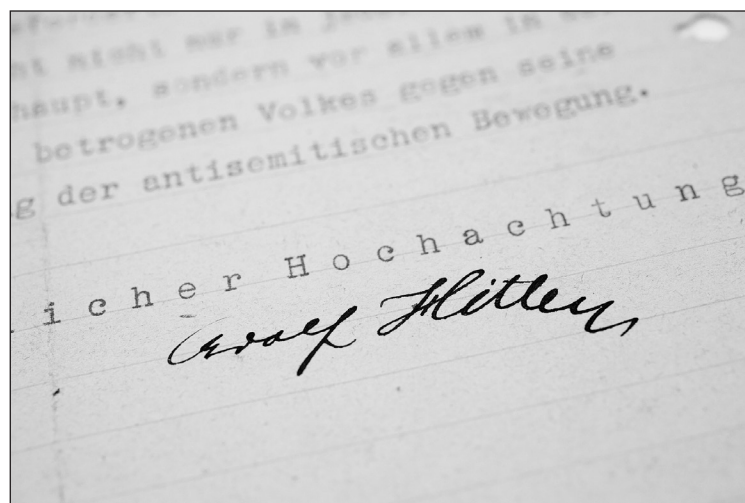 ht nicht nur in
haupt, sondern vor allem in
betrogenen Volkes gegen seine
g der antisemitischen Bewegung.
icher Hochachtung
Adolf Hitler